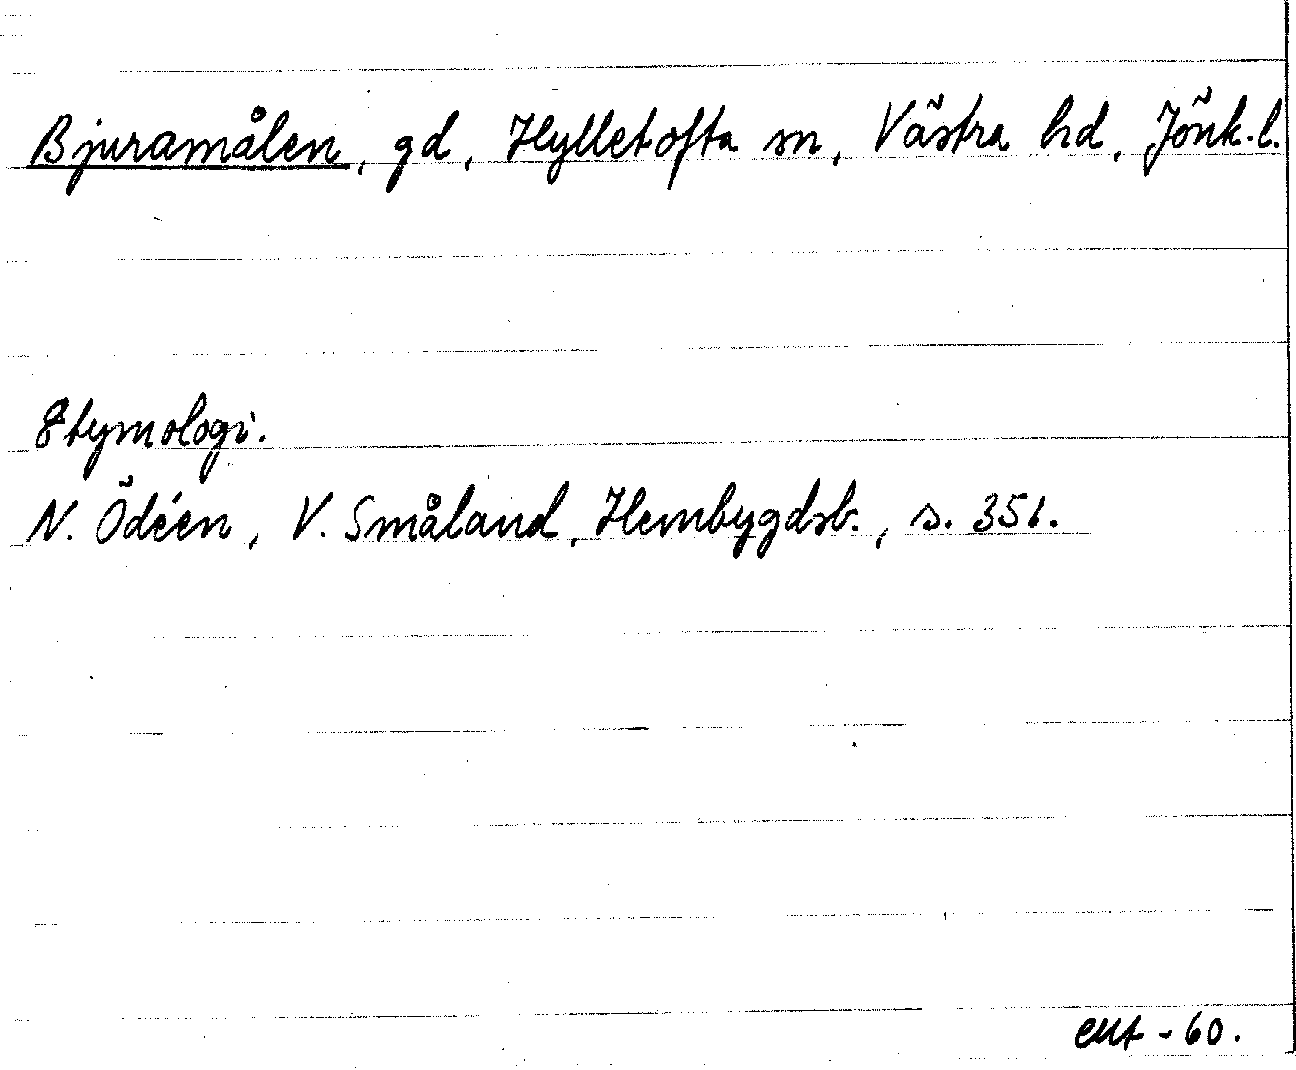 Bjuramålen, gd, Hylletofta sn, Västra hd, Jönk.l.
Etymologi.
N. Ödéen, V. Småland, Hembygdsb., s. 351.
- 60.